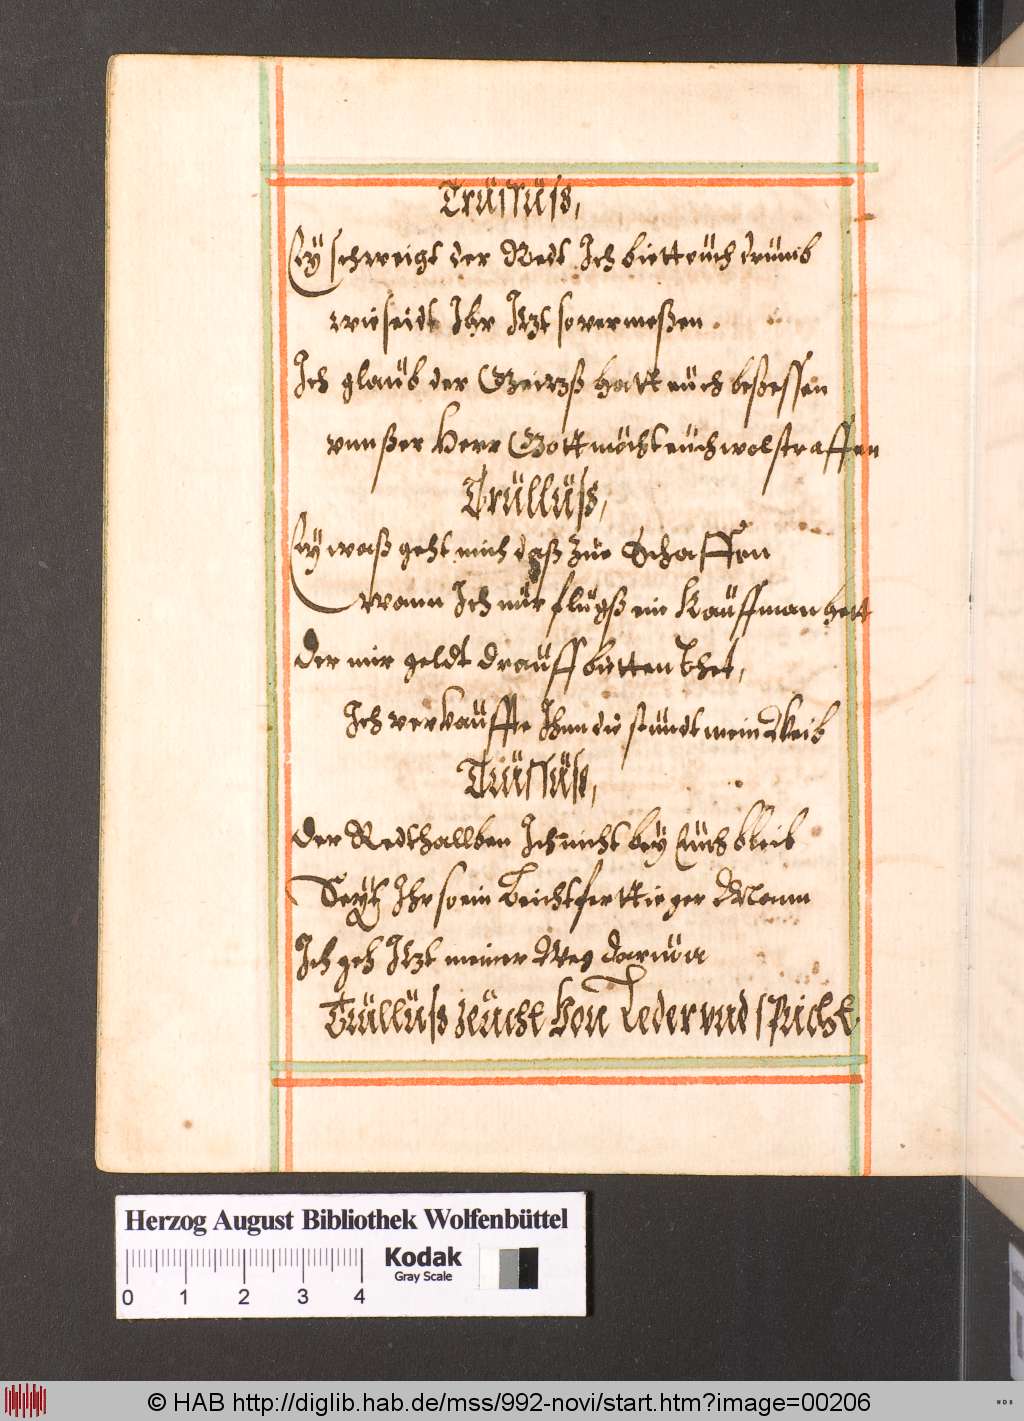 Trüssüß,
Ey schweigt der Redt Ich biett eüch drümb
wie seidt Ihr Itzt so vermeßen.
Ich glaüb der Geirzß hatt eüch beßessen
vnnßer Herr Gott möcht eüch wol straffen
Trüllüß,
Ey waß geht mich daß züe Schaffen
wann Ich nür flügß ein Kaüffman hett
Der mir geldt draüff bietten thet,
Ich verkaüffte Ihm die stündt mein Weib
Trüssüß,
Der Redt hallben Ich nicht bey Eüch bleib
Seyt Ihr so ein Leichtferttieger Mann
Ich geh Itzt meiner Weg daruon
Trüllüß zeücht von Leder vnd spricht
Herzog August Bibliothek Wolfenbüttel
Kodak
Gray Scale
0 1 2 3 4
© HAB http://diglib.hab.de/mss/992-novi/start.htm?image=00206